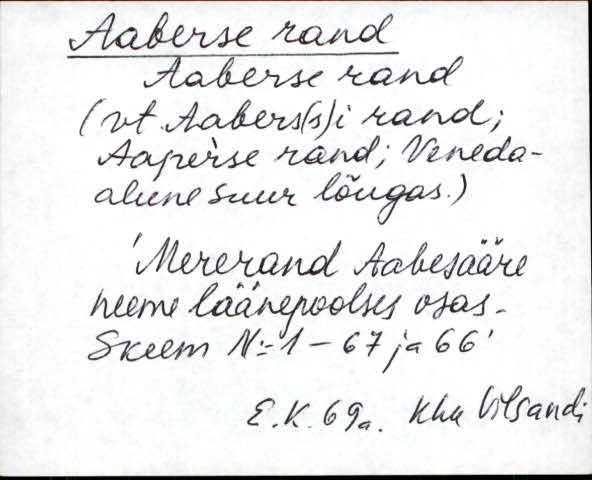 Aaberse rand
Aaberse rand
(vt Aabers(s)i rand;
Aaperse rand; Veneda-
alune suur lõugas.)
'Mererand Aabesääre
neeme läänepoolses osas.
Skeem N:1 – 67 ja 66'
E.K. 69a. Khk Vilsandi